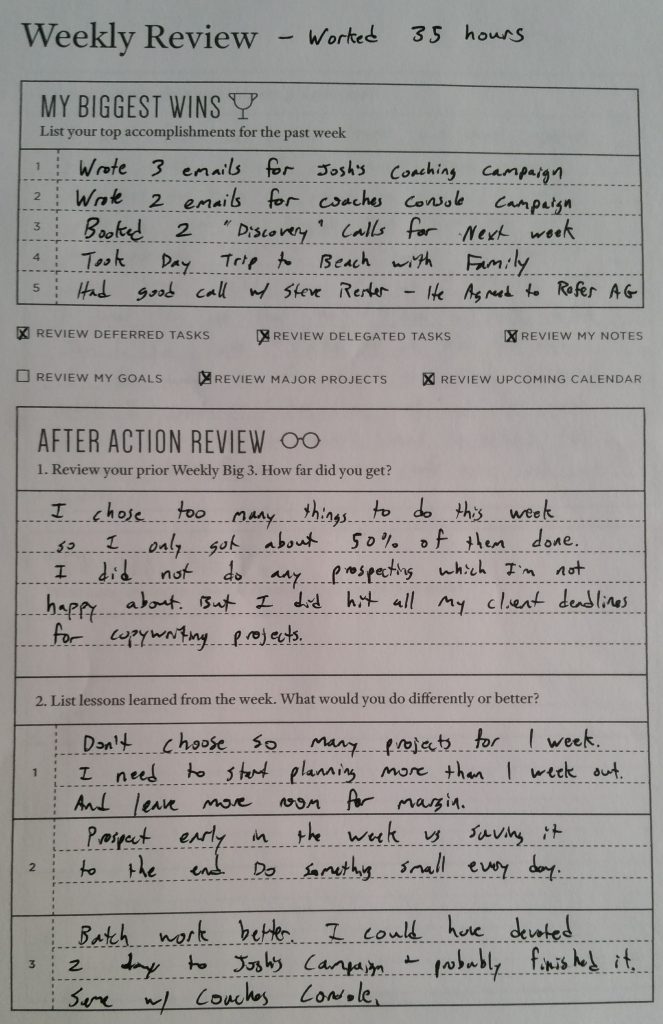 Weekly Review - Worked 35 hours
MY BIGGEST WINS
List your top accomplishments for the past week
1 Wrote 3 emails for Josh's Coaching Campaign
2 Wrote 2 emails for coaches console campaign
3 Booked 2 "Discovery" calls for Next week
4 Took Day Trip to Beach with Family
5 Had good call w/ Steve - He Agreed to Refer AG
REVIEW DEFERRED TASKS REVIEW DELEGATED TASKS REVIEW MY NOTES
REVIEW MY GOALS REVIEW MAJOR PROJECTS REVIEW UPCOMING CALENDAR
AFTER ACTION REVIEW
1. Review your prior Weekly Big 3. How far did you get?
I chose too many things to do this week
so I only got about 50% of them done.
I did not do any prospecting which I'm not
happy about. But I did hit all my client deadlines
for copywriting projects.
2. List lessons learned from the week. What would you do differently or better?
Don't choose so many projects for 1 week.
1 I need to start planning more than 1 week out.
And leave more room for margin.
Prospect early in the week vs saving it
2 to the end Do something small every day.
Batch work better. I could have devoted
3 2 day to Josh's Campaign + probably finished it.
Same w/ Coaches Console.